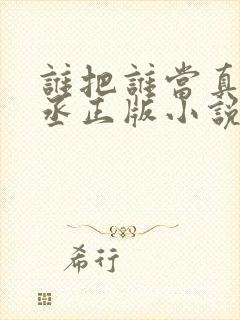 誰把誰當真
丞正版小說
希行